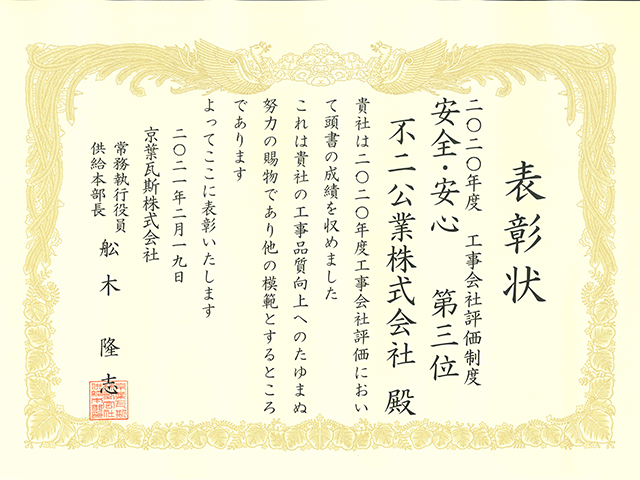 表彰状
二〇二〇年度 工事会社評価制度
安全・安心 第三位
不二公業株式会社 殿
貴社は二〇二〇年度工事会社評価におい
て頭書の成績を収めました
これは貴社の工事品質向上へのたゆまぬ
努力の賜物であり他の模範とするところ
であります
よってここに表彰いたします
二〇二一年二月一九日
京葉瓦斯株式会社
常務執行役員
供給本部長
舩木 隆志